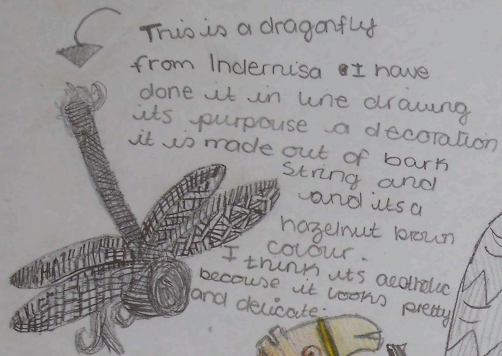 This is a dragonfly
from Indernisa I have
done it in line drawing
its purpouse a decoration
it is made out of bark
String and
and its a
hazelnut brown
colour.
I think its aeaholic
because it looks pretty
and delicate.